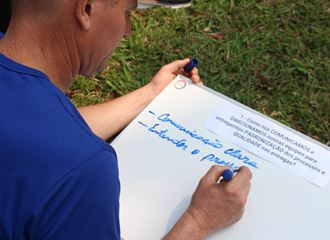 1 - Como nos COMUNICAMOS e
DIRECIONAMOS nossas equipes para
entregarmos PADRONIZAÇÃO dos processos e
QUALIDADE nas entregas?
- Comunicação clara
- Entender o